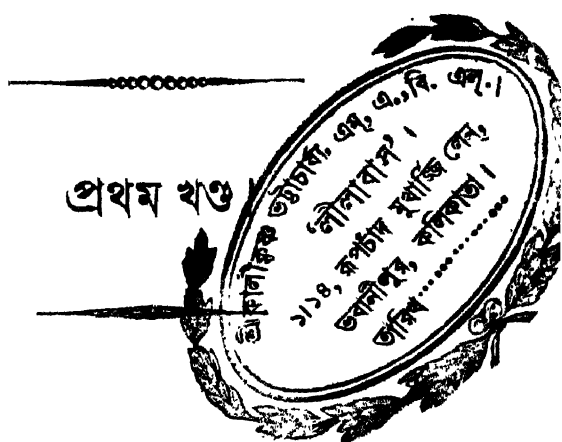 প্রথম খণ্ড।
শ্রীকালীকৃষ্ণ ভট্টাচার্য্য, এম, এ., বি. এল.।
‘লীলাবাস’।
১।১৪, রূপচাঁদ মুখার্জ্জি লেন,
ভবানীপুর, কলিকাতা।
তারিখ..................